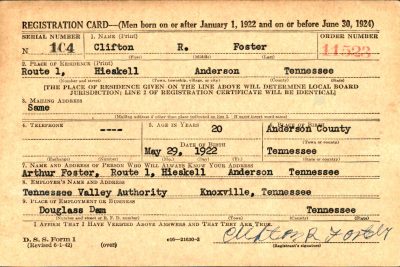 REGISTRATION CARD—(Men born on or after January 1, 1922 and on or before June 30, 1924)
SERIAL NUMBER 1. NAME (Print) ORDER NUMBER
N 104 Clifton R. Foster 11523
(First) (Middle) (Last)
2. PLACE OF RESIDENCE (Print)
Route 1, Hieskell Anderson Tennessee
(Number and street) (Town, township, village, or city) (County) (State)
[THE PLACE OF RESIDENCE GIVEN ON THE LINE ABOVE WILL DETERMINE LOCAL BOARD
JURISDICTION; LINE 2 OF REGISTRATION CERTIFICATE WILL BE IDENTICAL]
3. MAILING ADDRESS
Same
(Mailing address if other than place indicated on line 2. If same insert word same)
4. TELEPHONE 5. AGE IN YEARS 6. PLACE OF BIRTH
---- 20 Anderson County
DATE OF BIRTH (Town or county)
May 29, 1922 Tennessee
(Exchange) (Number) (Mo.) (Day) (Yr.) (State or country)
7. NAME AND ADDRESS OF PERSON WHO WILL ALWAYS KNOW YOUR ADDRESS
Arthur Foster, Route 1, Hieskell Anderson Tennessee
8. EMPLOYER'S NAME AND ADDRESS
Tennessee Valley Authority Knoxville, Tennessee
9. PLACE OF EMPLOYMENT OR BUSINESS
Douglass Dam Tennessee
(Number and street or R. F. D. number) (Town) (County) (State)
I AFFIRM THAT I HAVE VERIFIED ABOVE ANSWERS AND THAT THEY ARE TRUE.
D. S. S. Form 1 Clifton R Foster
(Revised 6-1-42) (over) e16—21630-2 (Registrant's signature)